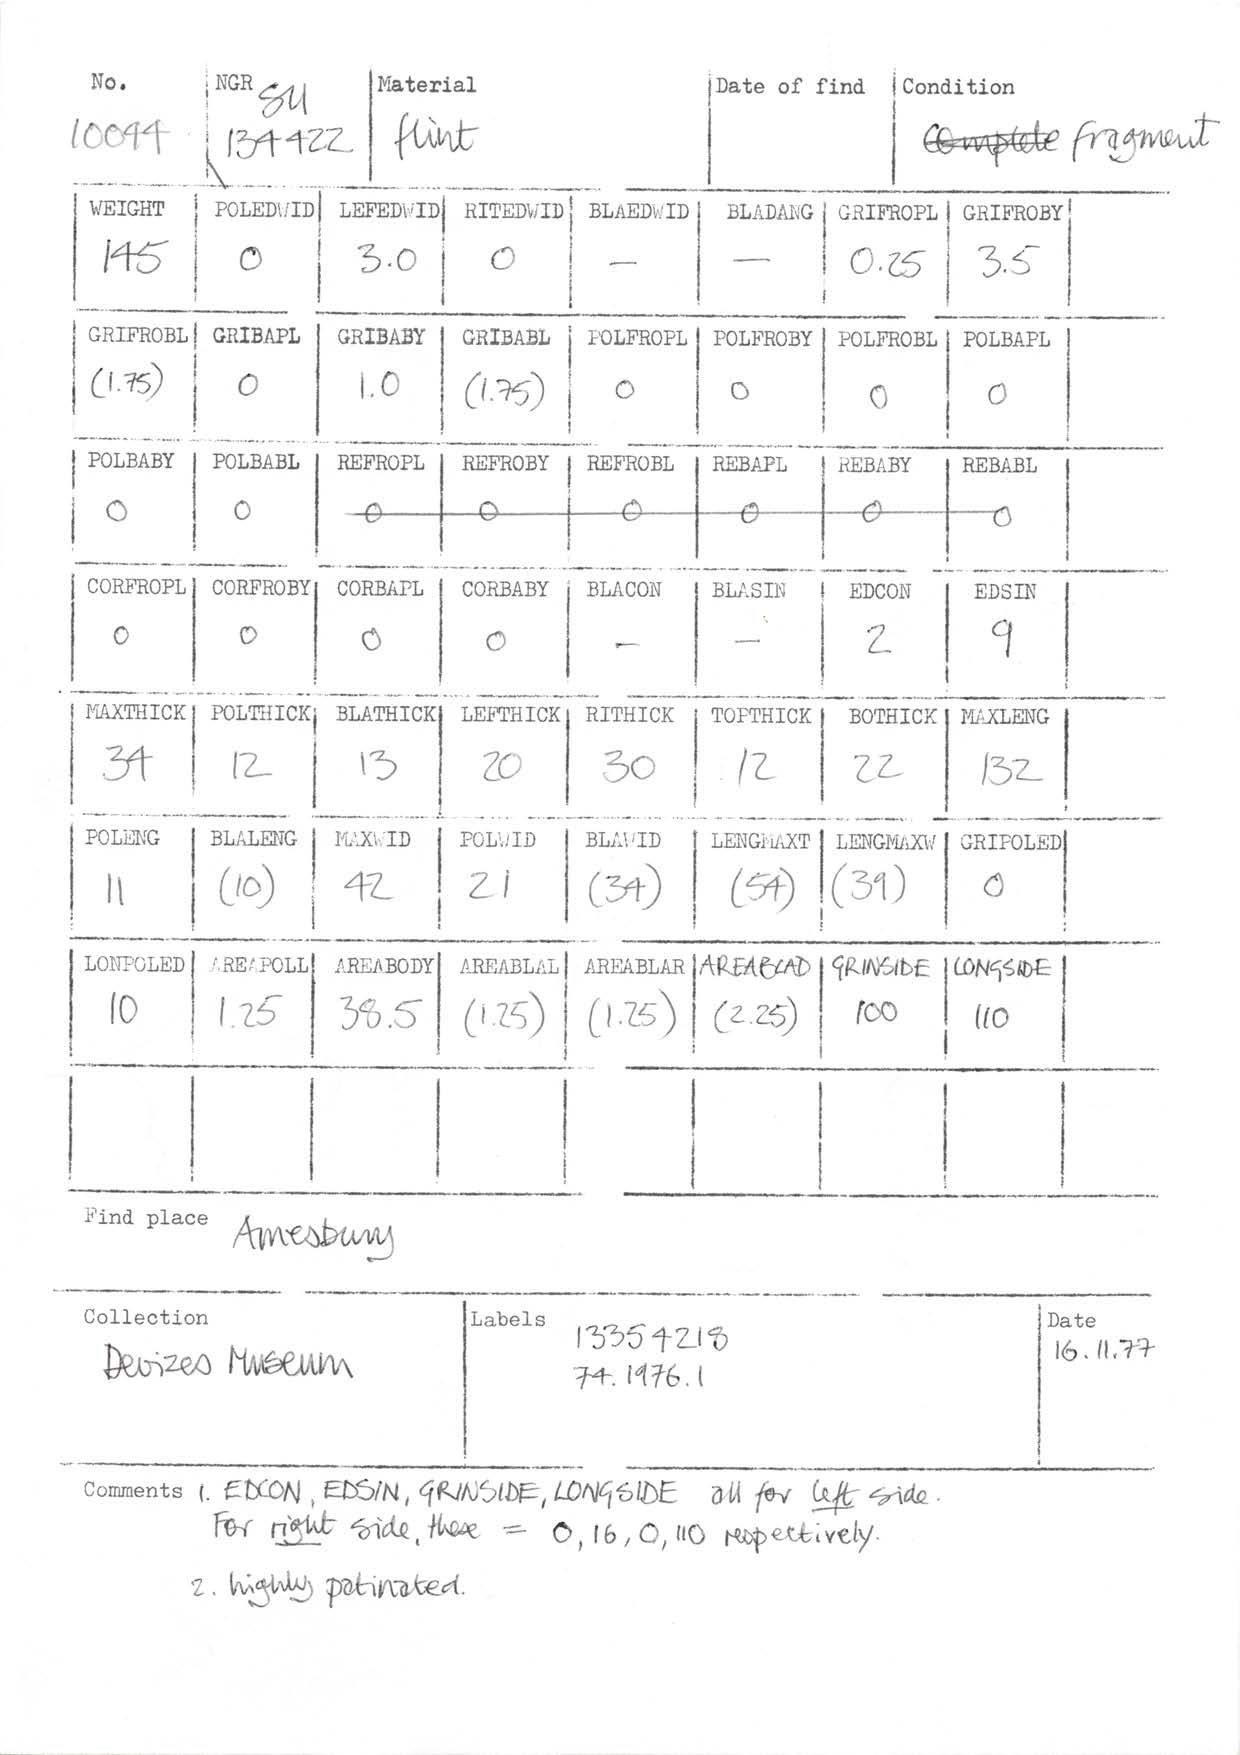 No. NGR Material Date of find Condition
10044 SU 134422 flint ~~Complete~~ fragment
WEIGHT POLEDWID LEFEDWID RITEDWID BLAEDWID BLADANG GRIFROPL GRIFROBY
145 0 3.0 0 — — 0.25 3.5
GRIFROBL GRIBAPL GRIBABY GRIBABL POLFROPL POLFROBY POLFROBL POLBAPL
(1.75) 0 1.0 (1.75) 0 0 0 0
POLBABY POLBABL REFROPL REFROBY REFROBL REBAPL REBABY REBABL
0 0 0 0 0 0 0 0
CORFROPL CORFROBY CORBAPL CORBABY BLACON BLASIN EDCON EDSIN
0 0 0 0 — — 2 9
MAXTHICK POLTHICK BLATHICK LEFTHICK RITHICK TOPTHICK BOTHICK MAXLENG
34 12 13 20 30 12 22 132
POLENG BLALENG MAXWID POLWID BLAWID LENGMAXT LENGMAXW GRIPOLED
11 (10) 42 21 (34) (54) (39) 0
LONPOLED AREAPOLL AREABODY AREABLAL AREABLAR AREABLAD GRINSIDE LONGSIDE
10 1.25 38.5 (1.25) (1.25) (2.25) 100 110
Find place Amesbury
Collection Labels Date
Devizes Museum 13354218 16.11.77
74.1976.1
Comments 1. EDCON, EDSIN, GRINSIDE, LONGSIDE all for left side.
For right side, these = 0, 16, 0, 110 respectively.
2. highly patinated.